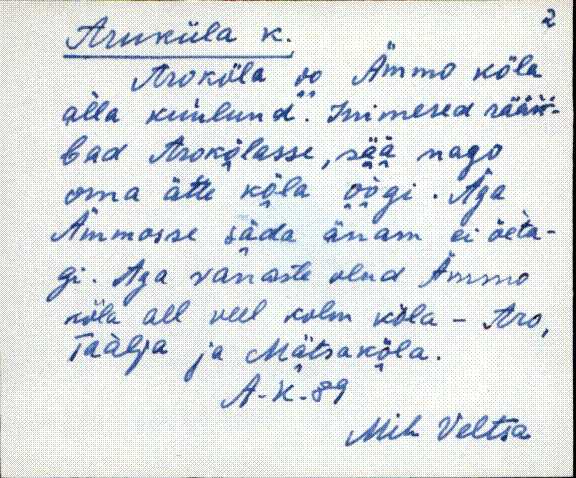 2
Aruküla k.
Aroköla oo Ämmo köla
alla kuulund. Inimesed rääk-
bad Arokölasse, sää nago
oma ätte köla öögi. Aga
Ämmosse säda änam ei öeta-
gi. Aga vanaste olnd Ämmo
köla all veel kolm köla - Aro,
Taälja ja Mätsaköla.
A-K-89
Mih Veltsa